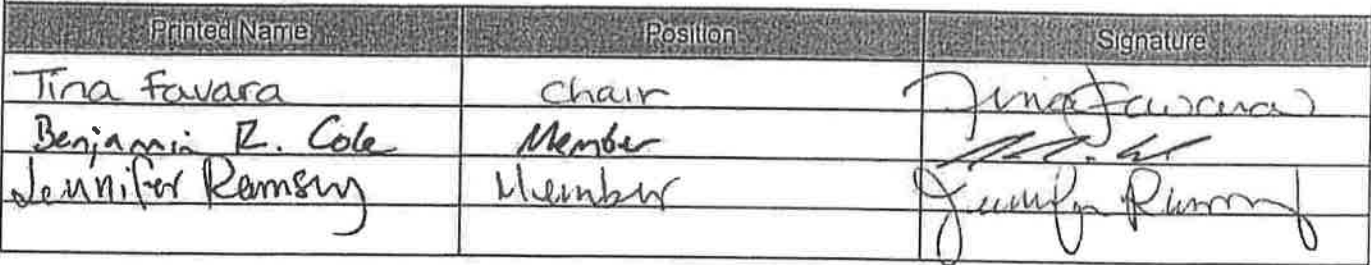 Printed Name Position Signature
Tina Favara Chair Tina Favara
Benjamin R. Cole Member
Jennifer Ramsey Member Jennifer Ramsey